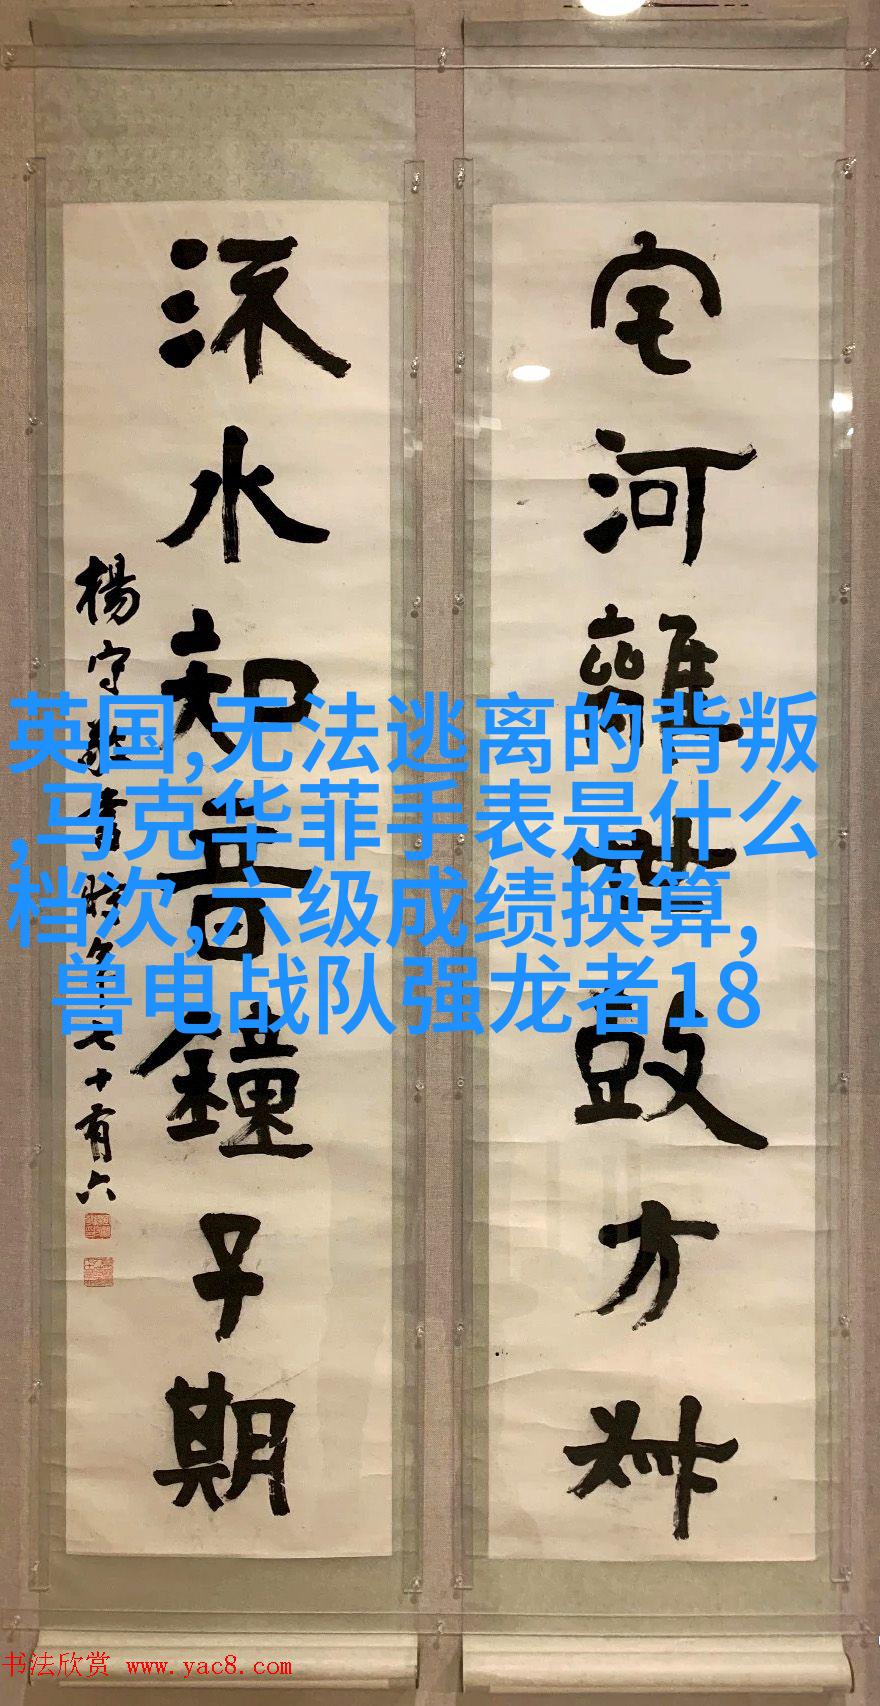 宅河離世鼓方
水知音鐘子期
楊守敬書時年七十有六
英国,无法逃离的背叛
,马克华菲手表是什么
档次,六级成绩换算,
兽电战队强龙者18
书法欣赏 www.yac8.com